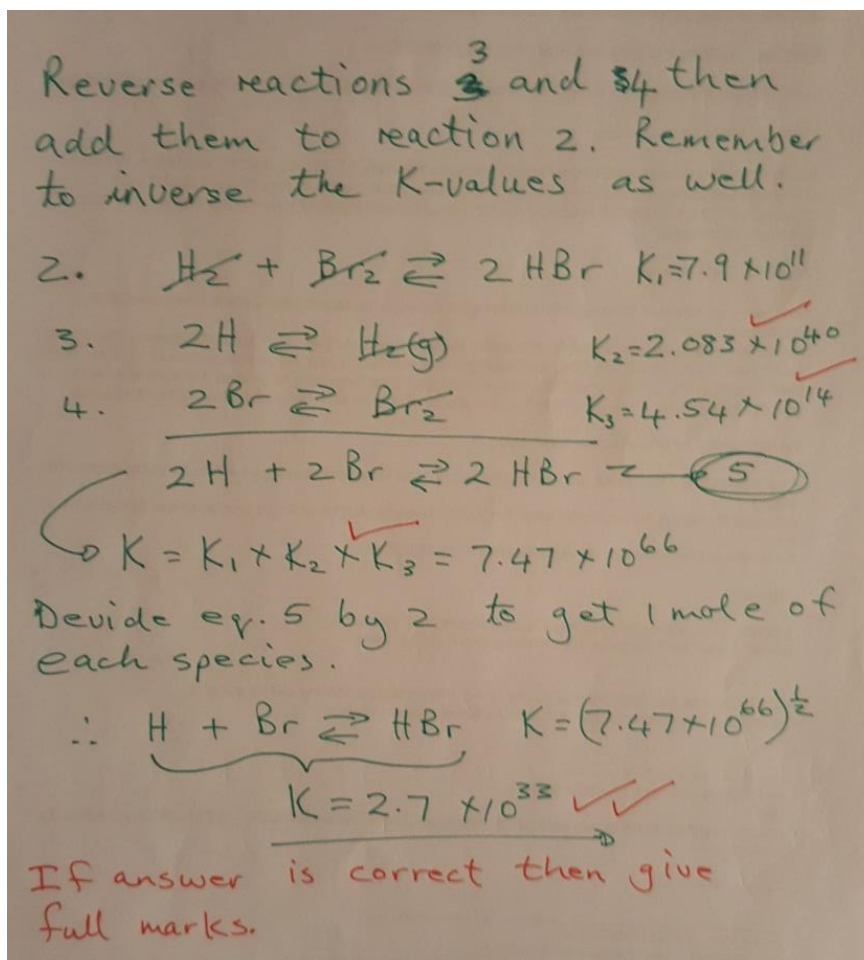 Reverse reactions 3 and 4 then
add them to reaction 2. Remember
to inverse the K-values as well.
2. H₂ + Br₂ ⇄ 2 HBr K₁=7.9 ×10¹¹
3. 2H ⇄ H₂(g) K₂=2.083 ×10⁴⁰
4. 2Br ⇄ Br₂ K₃=4.54 × 10¹⁴
2H + 2Br ⇄ 2 HBr 5
K = K₁ × K₂ × K₃ = 7.47 × 10⁶⁶
Devide eq. 5 by 2 to get 1 mole of
each species.
∴ H + Br ⇄ HBr K=(7.47×10⁶⁶)^½
K = 2.7 ×10³³ ✓✓
If answer is correct then give
full marks.